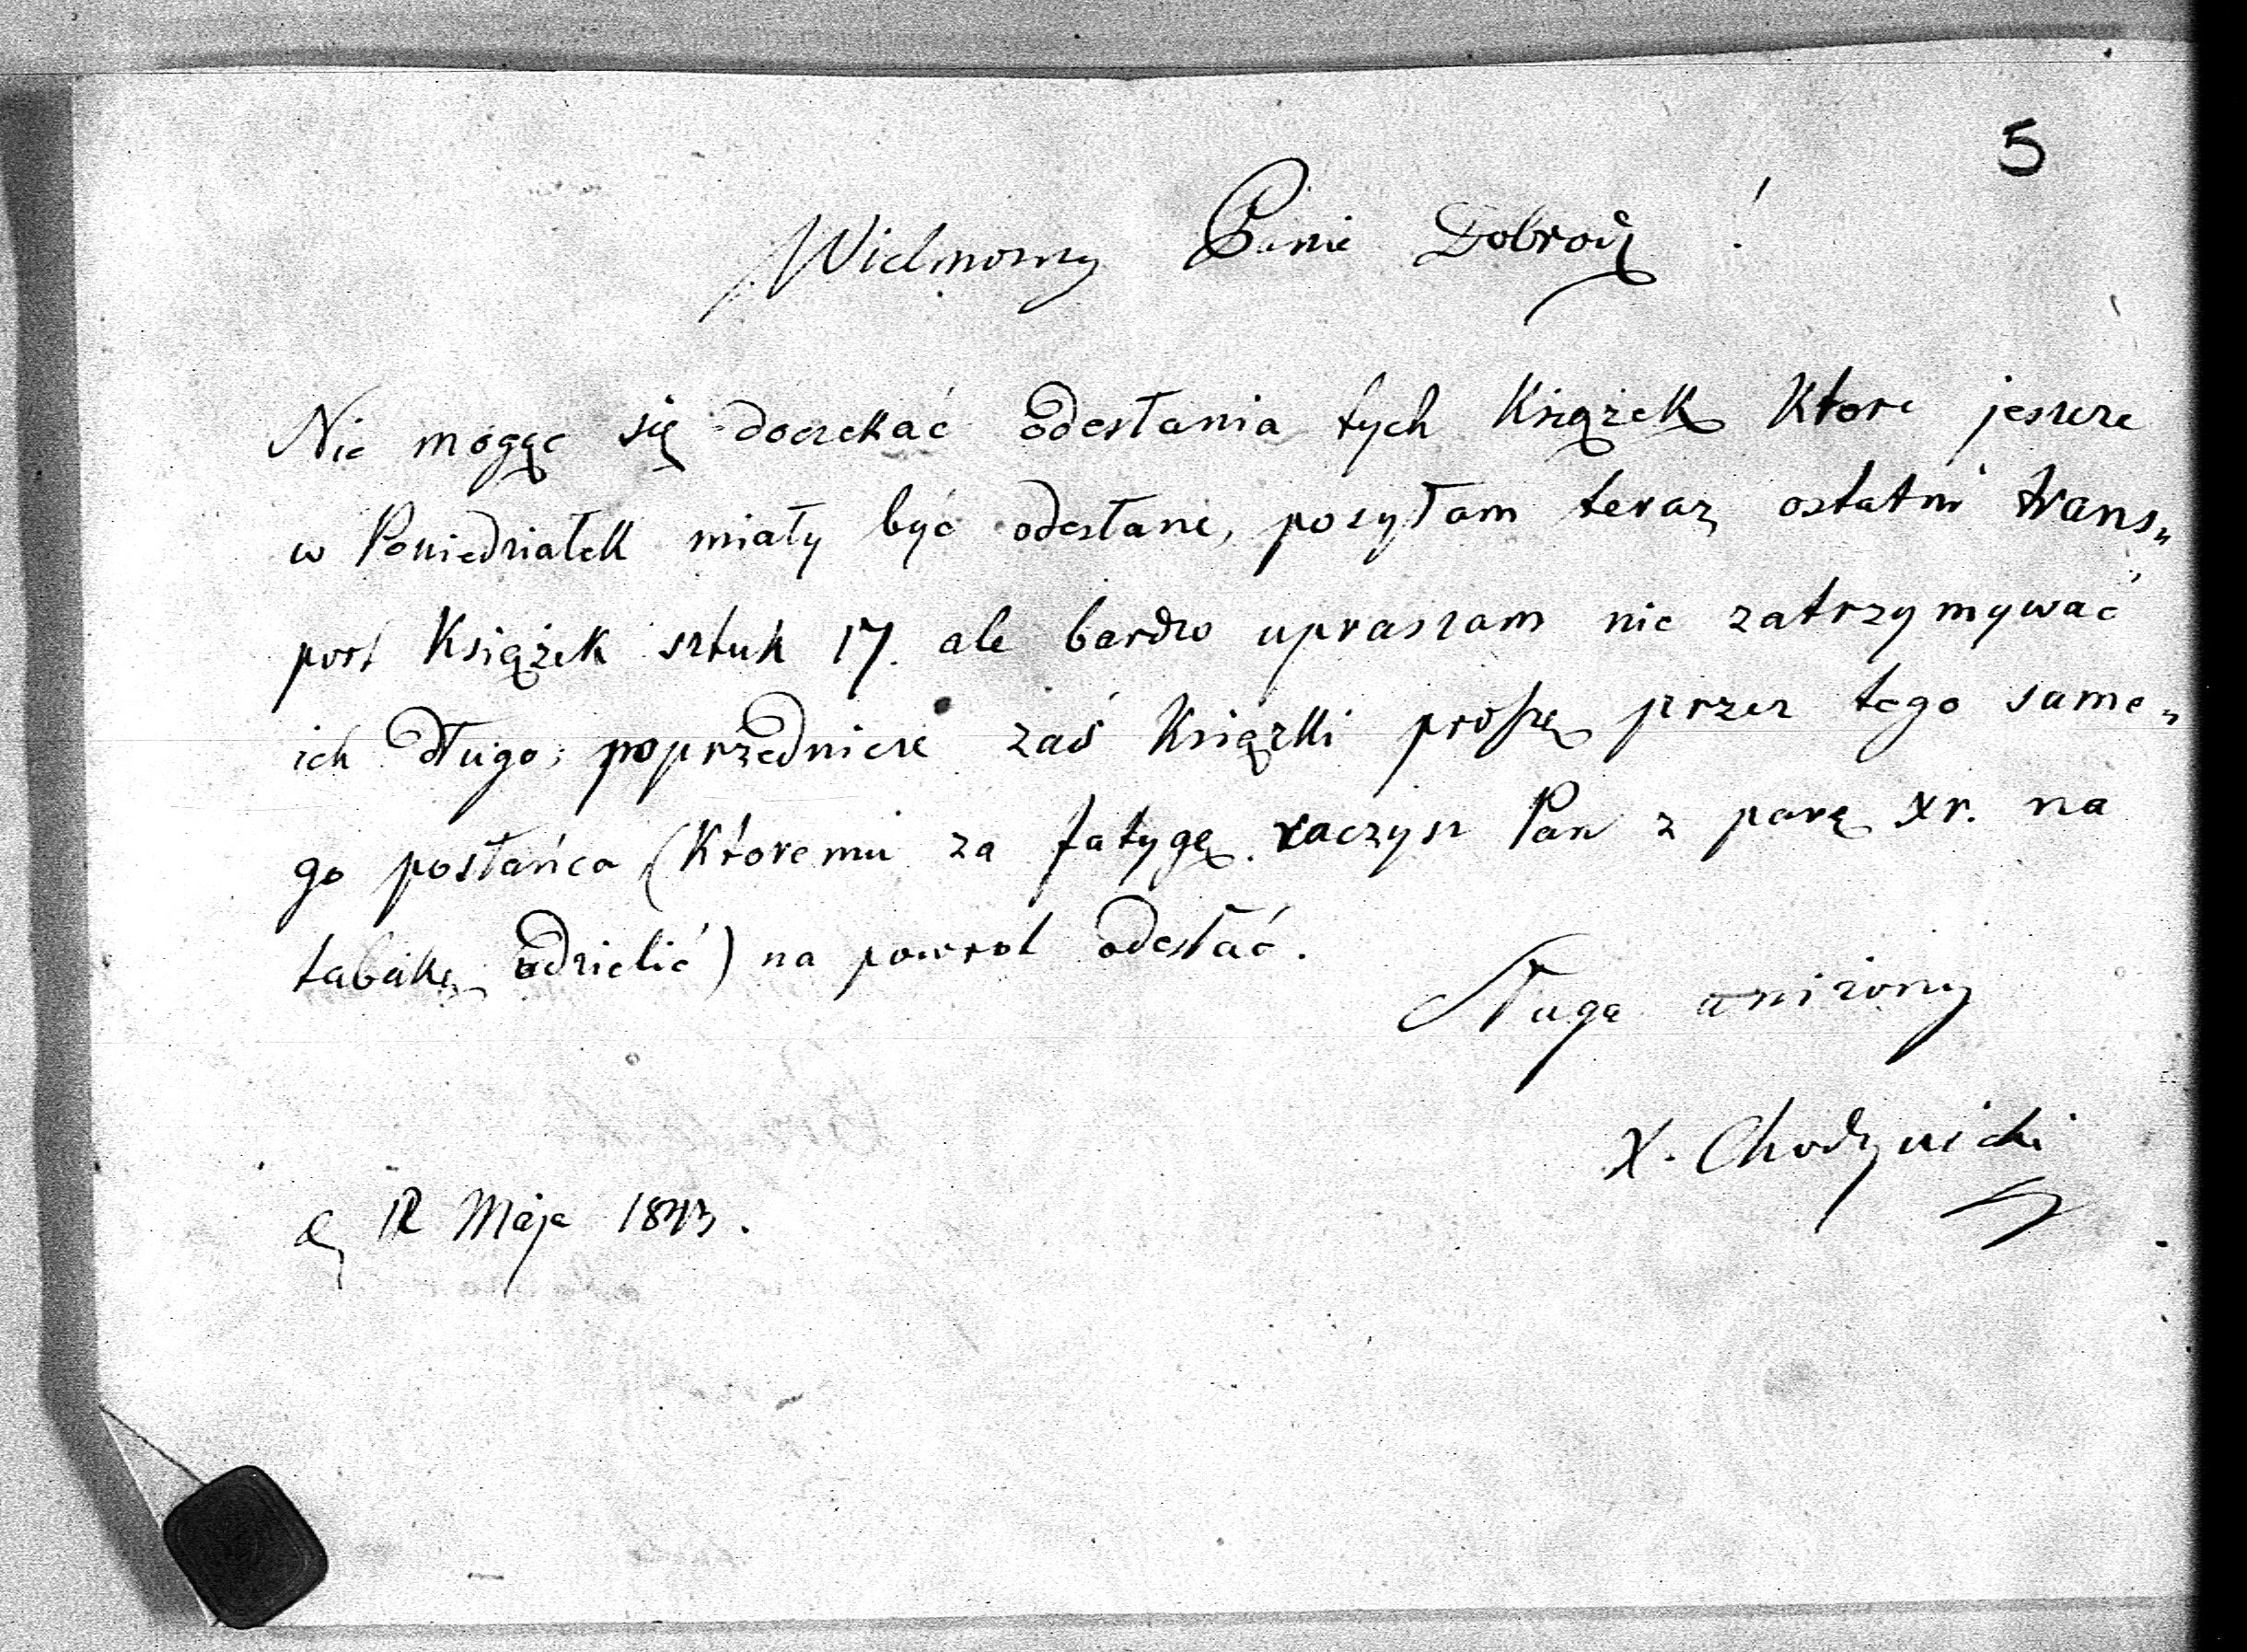 5
Wielmożny Panie Dobrodz !
Nie mogąc się doczekać odesłania tych Książek Ktore jeszcze
w Poniedziałek miały być odesłane, posyłam teraz ostatni trans„
port Książek sztuk 17. ale bardzo upraszam nie zatrzymywać
ich długo; poprzedniczé zaś Książki proszę przez tego same„
go posłańca (Ktoremu za fatygę raczysz Pan z parę xr. na
tabakę udzielić) na powrot odesłać.
Sługa uniżony
X. Chodzynicki
d. 12 Maja 1843.